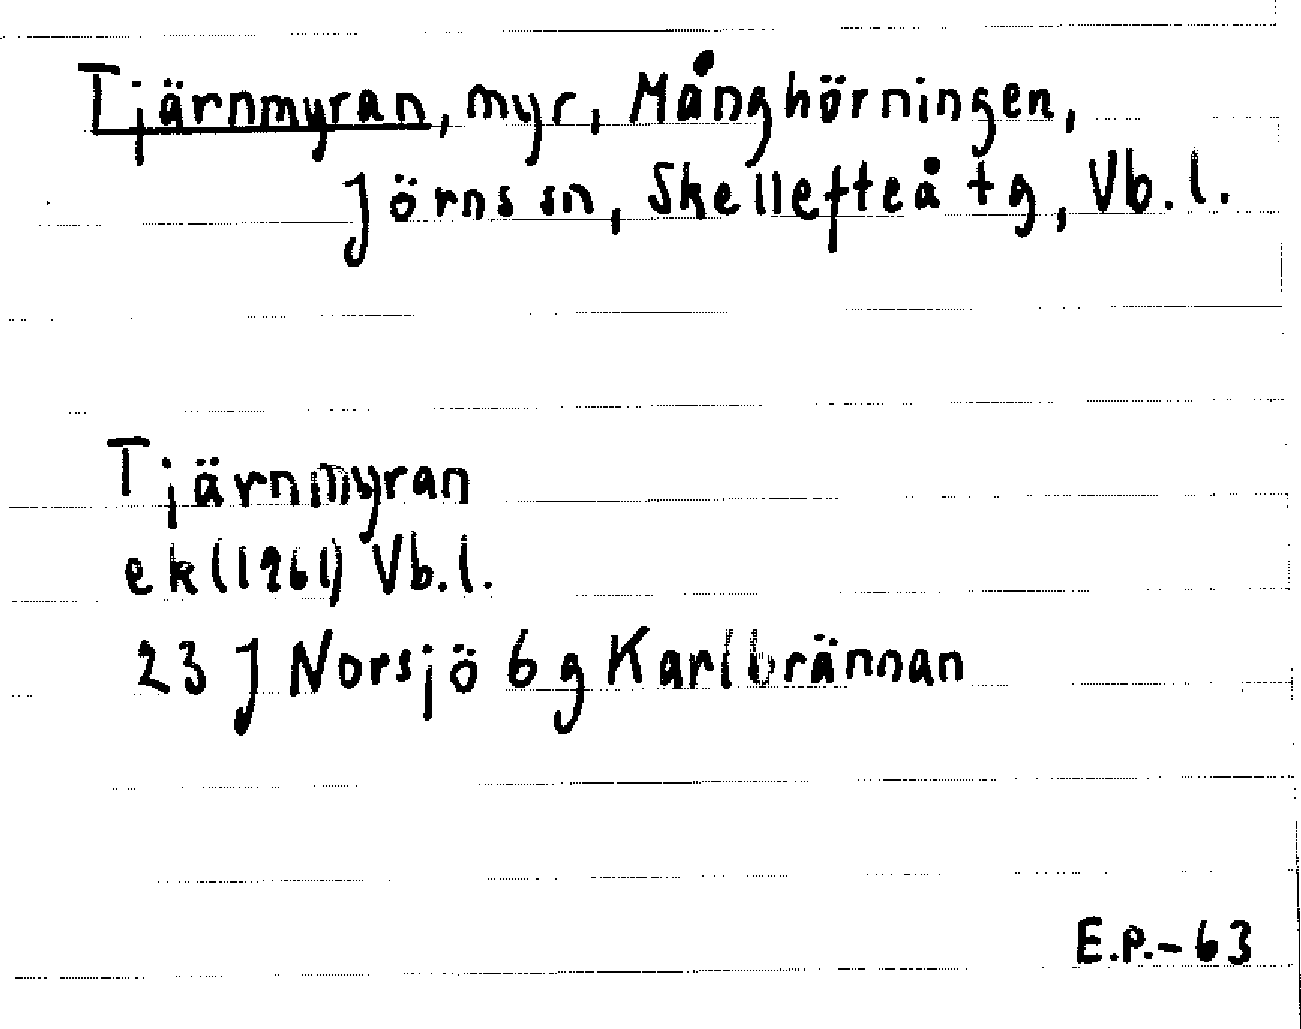 Tjärnmyran, myr, Månghörningen,
Jörns sn, Skellefteå tg, Vb.l.
Tjärnmyran
ek (1961) Vb.l.
23 J Norsjö 6 g Karlbrännan
E.P.-63